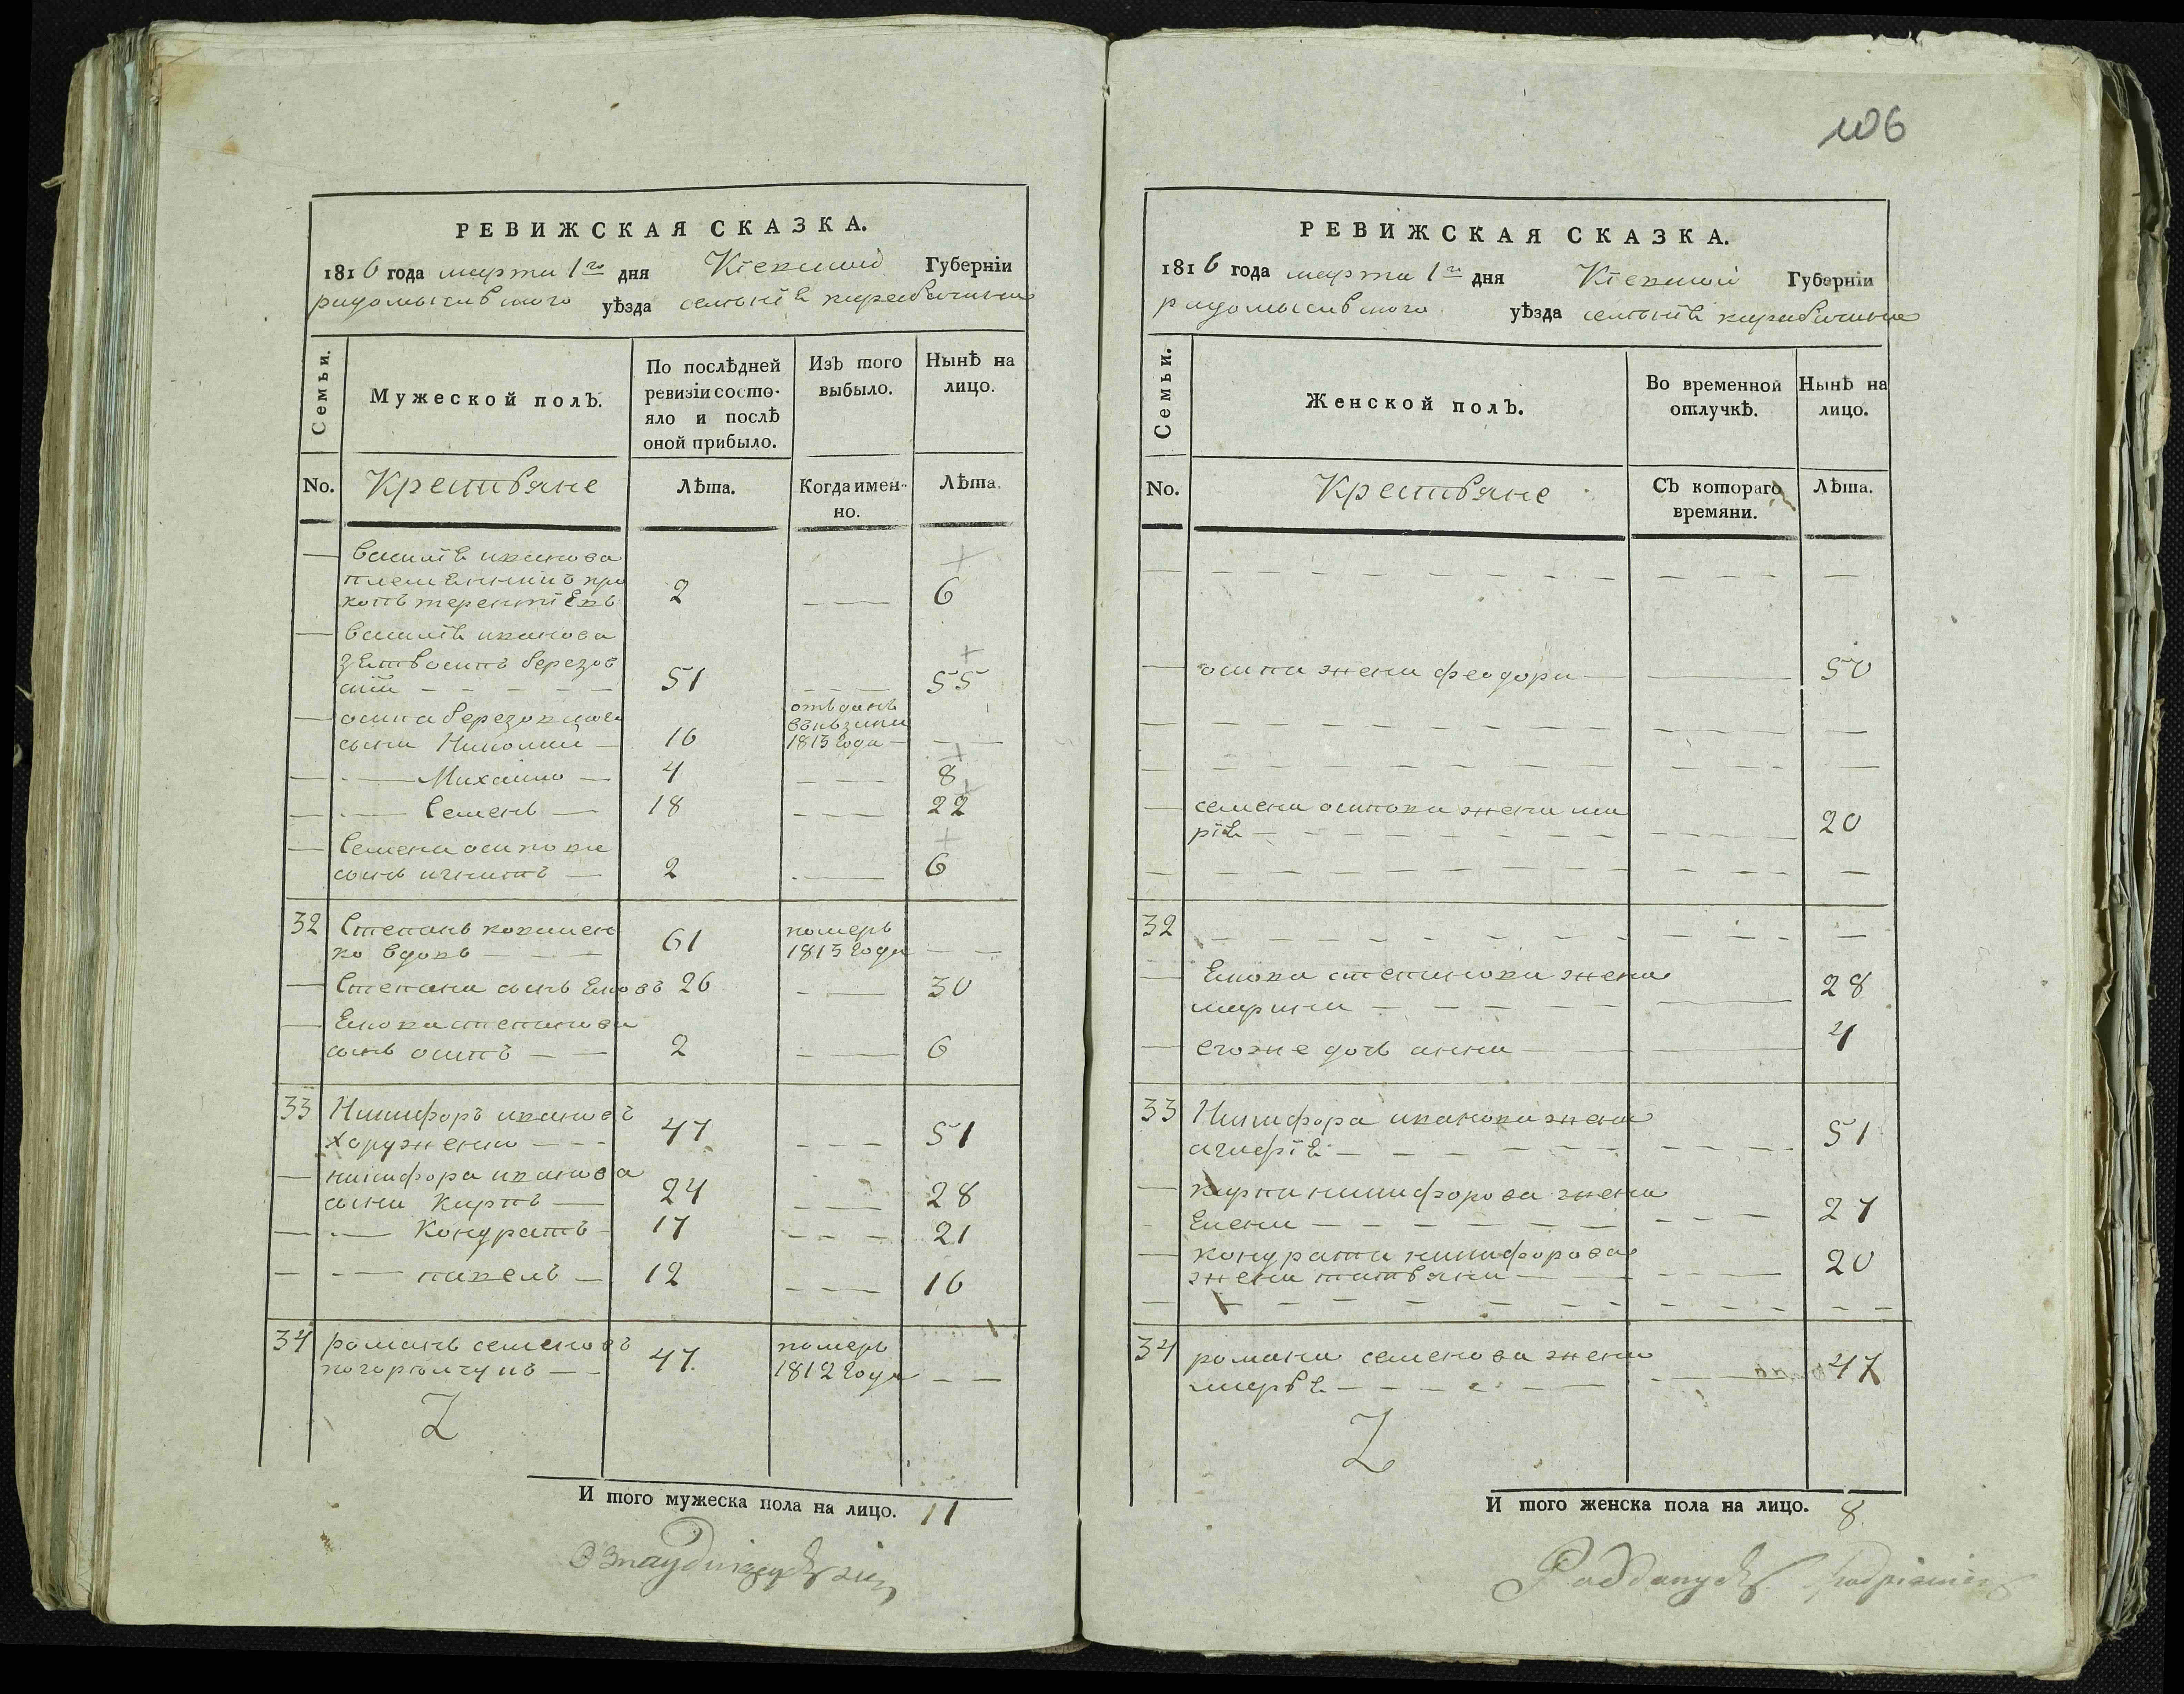 РЕВИЖСКАЯ СКАЗКА.
1816 года марта 1го дня Кіевской Губерніи
радомысльского уѣзда селенія карабачина
Семьи.
Мужеской полъ.
По послѣдней ревизіи состояло и послѣ оной прибыло.
Изъ того выбыло.
Нынѣ на лицо.
No. Крестьяне Лѣта. Когда именно. Лѣта.
василія иванова
племенникъ про
копъ терентіевъ 2 6
василія иванова
зять осипъ березов
скій 51 55
осипа березовского отъданъ
сини Николай 16 1813 года
Михайло 4 8
Семенъ 18 22
Семена осипова
синъ игнатъ 2 6
32 Степанъ ковален померъ
ко вдовъ 61 1813 года
Степана синъ Яковъ 26 30
Якова степанова
синъ осипъ 2 6
33 Никифоръ ивановъ
хоруженко 47 51
никифора иванова
сини Карпъ 24 28
Кондратъ 17 21
павелъ 12 16
34 романъ семеновъ померъ
47 1812 года
И того мужеска пола на лицо. 11
106
РЕВИЖСКАЯ СКАЗКА.
1816 года марта 1го дня Кіевской Губерніи
радомысльского уѣзда селенія карабачина
Семьи.
Женской полъ.
Во временной отлучкѣ.
Нынѣ на лицо.
No. Крестьяне Съ котораго времяни. Лѣта.
осипа жена феодора 50
семена осипова жена ма
рія 20
32
Якова степанова жена
марина 28
егоже дочь анна 4
33 Никифора иванова жена
агафія 51
карпа никифорова жена
Елена 27
кондрата никифорова
жена татьяна 20
34 романа семенова жена
марья 47
И того женска пола на лицо. 8.